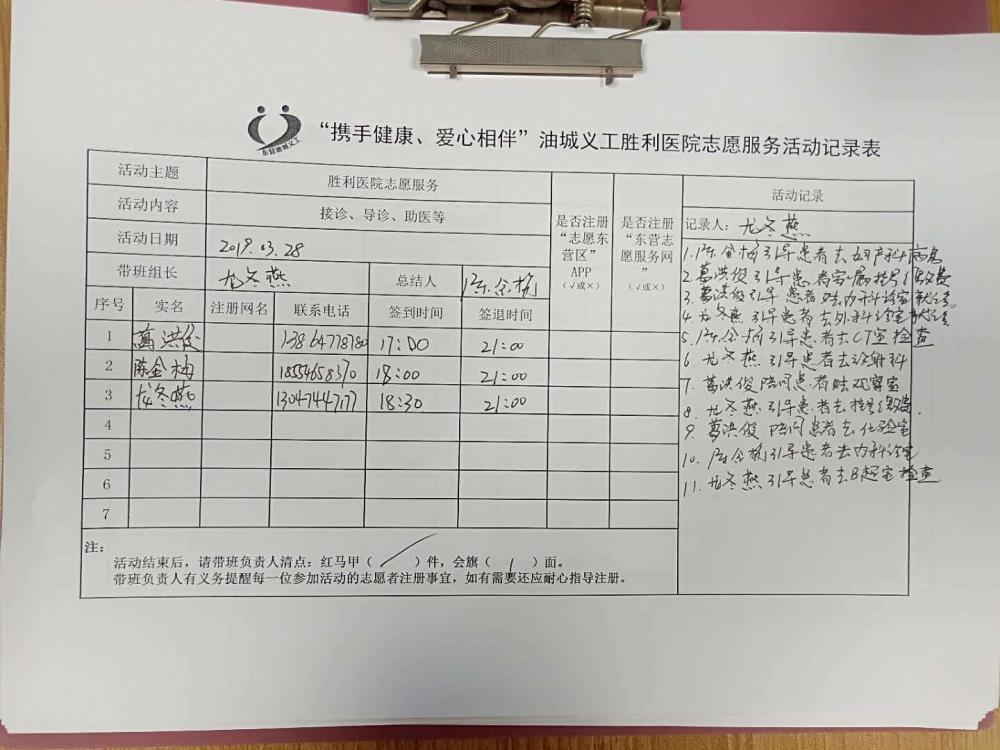 东营油城义工
“携手健康、爱心相伴”油城义工胜利医院志愿服务活动记录表
活动主题 胜利医院志愿服务
活动内容 接诊、导诊、助医等
活动日期 2019.03.28
带班组长 龙冬燕 总结人 陈金梅
是否注册“志愿东营区”APP（√或×）
是否注册“东营志愿服务网”（√或×）
序号 实名 注册网名 联系电话 签到时间 签退时间
1 葛洪俊 13864778780 17:00 21:00
2 陈金梅 18554658370 18:00 21:00
3 龙冬燕 13047447177 18:30 21:00
4
5
6
7
注：
活动结束后，请带班负责人清点：红马甲（ ）件，会旗（ 1 ）面。
带班负责人有义务提醒每一位参加活动的志愿者注册事宜，如有需要还应耐心指导注册。
活动记录
记录人：龙冬燕
1.陈金梅引导患者去妇产科病房
2.葛洪俊引导患者家属挂号缴费
3.葛洪俊引导患者去内科诊室就诊
4.龙冬燕引导患者去外科诊室就诊
5.陈金梅引导患者去CT室检查
6.龙冬燕引导患者去注射科
7.葛洪俊陪同患者去观察室
8.龙冬燕引导患者去挂号缴费.
9.葛洪俊陪同患者去化验室
10.陈金梅引导患者去内科诊室
11.龙冬燕引导患者去B超室检查